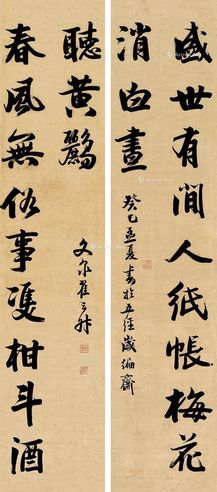 盛世有閒人紙帳梅花
消白晝
癸巳孟夏書於五經歲徧齋
春風無俗事雙柑斗酒
聽黃鸝